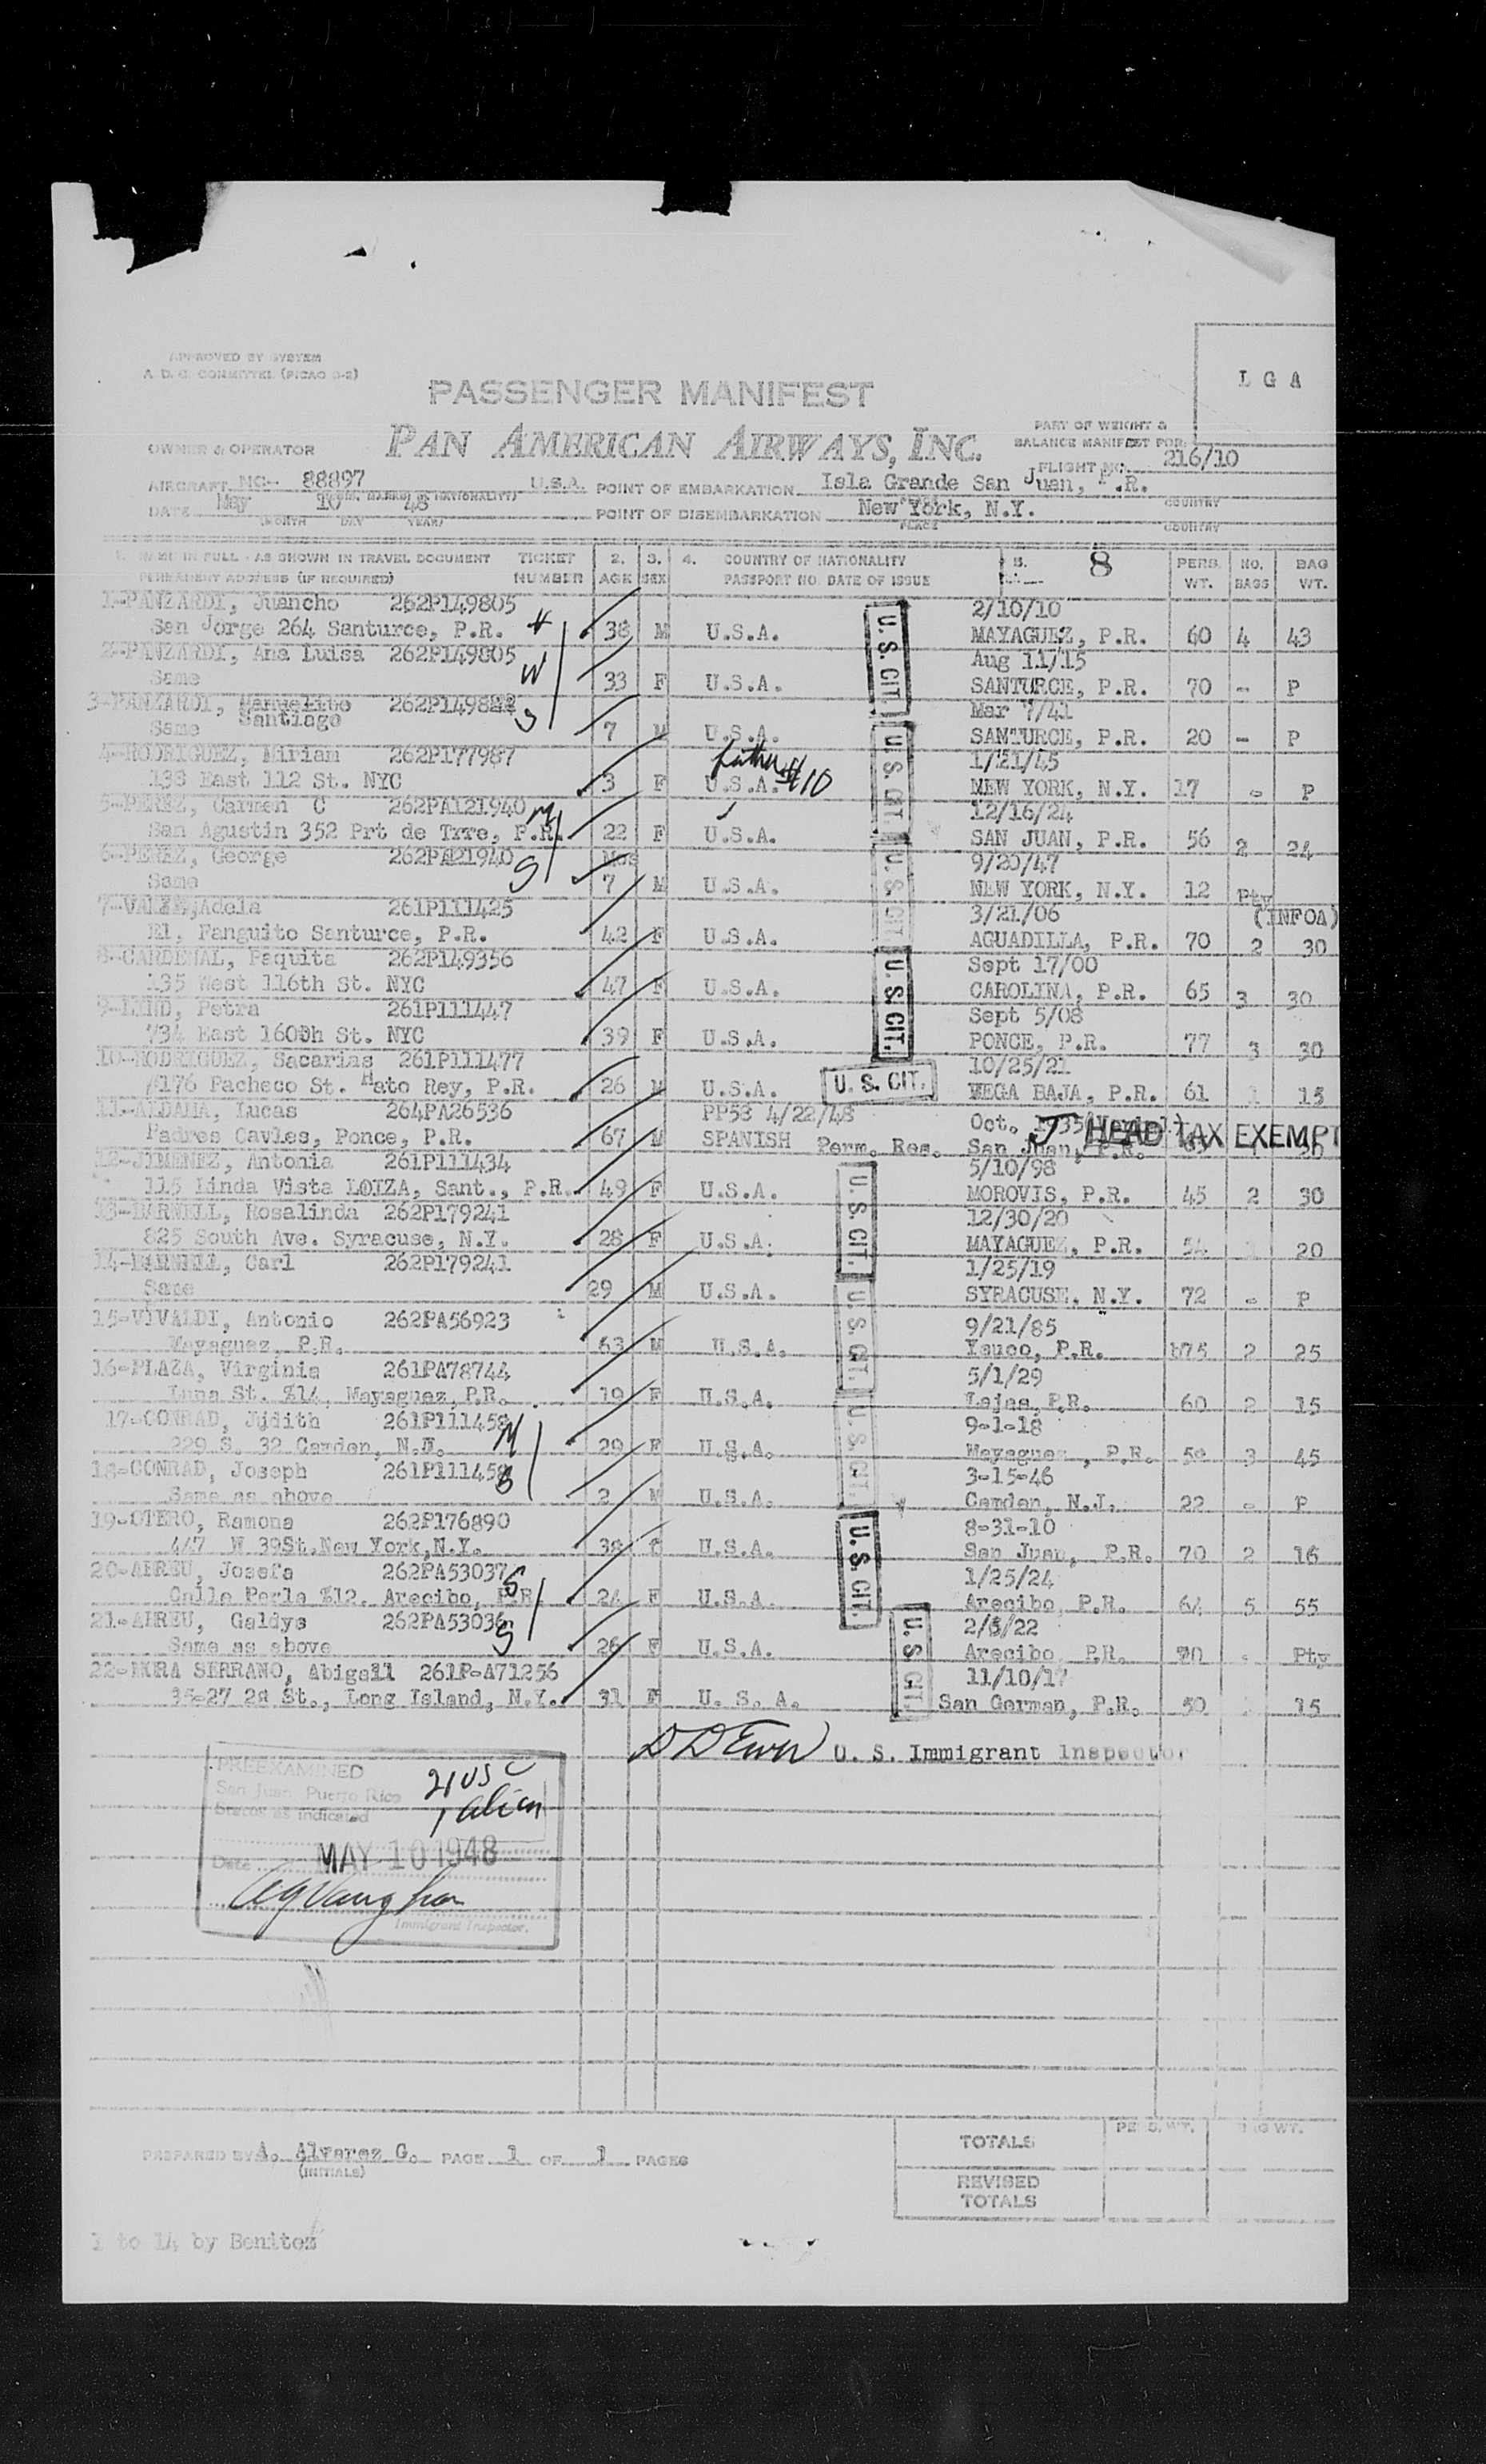 APPROVED BY SYSTEM
A. D. C. COMMITTEE (PICAO D-2)
L G A
PASSENGER MANIFEST
PART OF WEIGHT &
BALANCE MANIFEST FOR:
OWNER & OPERATOR
PAN AMERICAN AIRWAYS, INC.
FLIGHT NO. 216/10
AIRCRAFT NC- 88897 U.S.A. POINT OF EMBARKATION Isla Grande San Juan, P.R.
COUNTRY
DATE May 10 48 POINT OF DISEMBARKATION New York, N.Y.
(MONTH DAY YEAR) PLACE COUNTRY
1. NAME IN FULL - AS SHOWN IN TRAVEL DOCUMENT TICKET 2. 3. 4. COUNTRY OF NATIONALITY 5. 8 PERS. NO. BAG
PERMANENT ADDRESS (IF REQUIRED) NUMBER AGE SEX PASSPORT NO. DATE OF ISSUE WT. BAGS WT.
1-PANZARDI, Juancho 262P149805 2/10/10
San Jorge 264 Santurce, P.R. H 38 M U.S.A. MAYAGUEZ, P.R. 60 4 43
2-PANZARDI, Ana Luisa 262P149805 Aug 11/15
Same W 33 F U.S.A. SANTURCE, P.R. 70 - P
3-PANZARDI, Manuelito 262P149822 Mar 7/41
Same Santiago S 7 M U.S.A. SANTURCE, P.R. 20 - P
4-RODRIGUEZ, Miriam 262P177987 father #10 1/21/45
138 East 112 St. NYC 3 F U.S.A. NEW YORK, N.Y. 17 - P
5-PEREZ, Carmen C 262PA121940 M 12/16/24
San Agustin 352 Prt de Trre, P.R. 22 F U.S.A. SAN JUAN, P.R. 56 2 24
6-PEREZ, George 262PA21940 S Mos 9/20/47
Same 7 M U.S.A. NEW YORK, N.Y. 12 Pty
7-VALEZ,Adela 261P111425 3/21/06 (INFOA)
El, Fanguito Santurce, P.R. 42 F U.S.A. AGUADILLA, P.R. 70 2 30
8-CARDENAL, Paquita 262P149356 Sept 17/00
135 West 116th St. NYC 47 F U.S.A. CAROLINA, P.R. 65 3 30
9-LIND, Petra 261P111447 Sept 5/08
734 East 160th St. NYC 39 F U.S.A. PONCE, P.R. 77 3 30
10-RODRIGUEZ, Sacarias 261P111477 10/25/21
#176 Pacheco St. Hato Rey, P.R. 26 M U.S.A. U. S. CIT. VEGA BAJA, P.R. 61 1 15
11-ALDAMA, Lucas 264PA26536 PP53 4/22/48 Oct.
Padres Cavles, Ponce, P.R. 67 M SPANISH Perm. Res. San Juan, P.R. HEAD TAX EXEMPT
12-JIMENEZ, Antonia 261P111434 5/10/98
115 Linda Vista LOIZA, Sant., P.R. 49 F U.S.A. MOROVIS, P.R. 45 2 30
13-BARNELL, Rosalinda 262P179241 12/30/20
825 South Ave. Syracuse, N.Y. 28 F U.S.A. MAYAGUEZ, P.R. 54 1 20
14-BARNELL, Carl 262P179241 1/25/19
Same 29 M U.S.A. SYRACUSE, N.Y. 72 - P
15-VIVALDI, Antonio 262PA56923 9/21/85
Mayaguez, P.R. 63 M U.S.A. Yauco, P.R. 175 2 25
16-PLAZA, Virginia 261PA78744 5/1/29
Luna St. #14, Mayaguez,P.R. 19 F U.S.A. Lajas,P.R. 60 2 15
17-CONRAD, Judith 261P111458 9-1-18
229 S. 32 Camden, N.J. M 29 F U.S.A. Mayaguez, P.R. 50 3 45
18-CONRAD, Joseph 261P111458 3-15-46
Same as above S 2 M U.S.A. Camden, N.J. 22 - P
19-OTERO, Ramona 262P176890 8-31-10
447 W 39St.New York,N.Y. 38 f U.S.A. San Juan, P.R. 70 2 16
20-ABREU, Josefa 262PA53037 S 1/25/24
Calle Perla #12, Arecibo, P.R. 24 F U.S.A. Arecibo, P.R. 64 5 55
21-ABREU, Galdys 262PA53036 2/6/22
Same as above S 26 F U.S.A. Arecibo P.R. 70 - Pty
22-MORA SERRANO, Abigail 261P-A71256 11/10/17
35-27 28 St., Long Island, N.Y. 31 F U. S. A. San German, P.R. 50 15
U.S. CIT.
U.S. CIT.
U.S. CIT.
U.S. CIT.
U.S. CIT.
U.S. CIT.
U.S. CIT.
U.S. CIT.
U.S. CIT.
U. S. Immigrant Inspector
PREEXAMINED
San Juan, Puerto Rico
Status as indicated
21 USC
1 alien
Date MAY 10 1948
Immigrant Inspector.
PREPARED BY A. Alvarez G. PAGE 1 OF 1 PAGES
(INITIALS)
PERS. WT. BAG WT.
TOTALS
REVISED
TOTALS
1 to 14 by Benitez